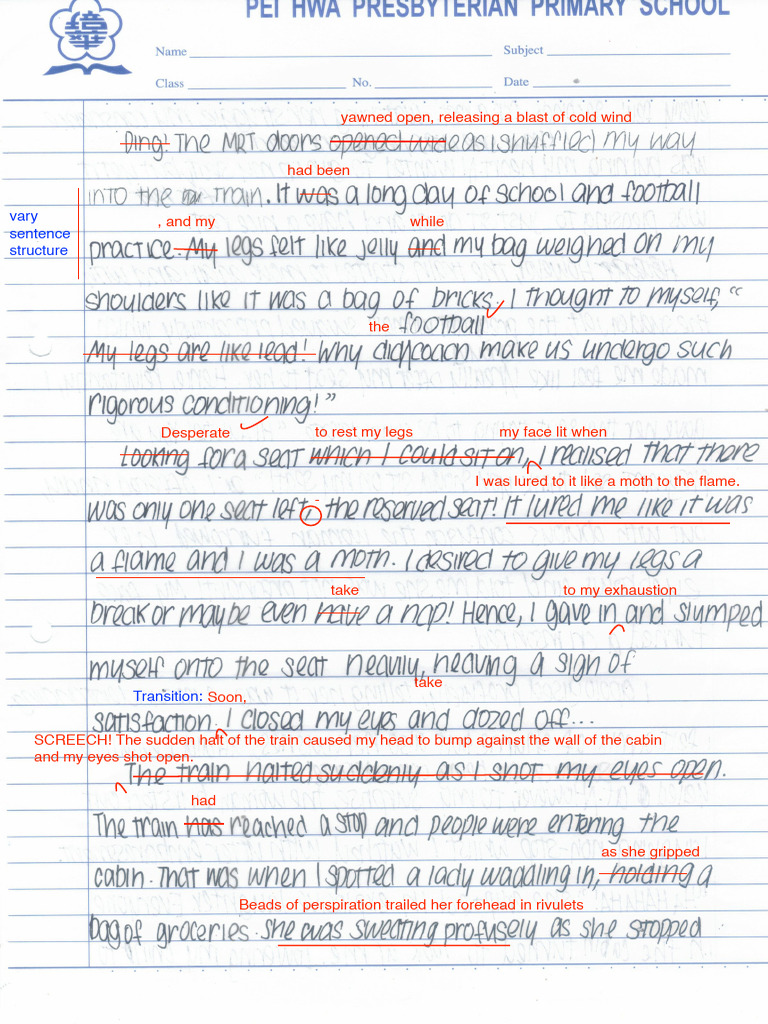 PEI HWA PRESBYTERIAN PRIMARY SCHOOL
Name Subject
Class No. Date
yawned open, releasing a blast of cold wind
Ding! The MRT doors opened wide as I shuffled my way
had been
into the train. It was a long day of school and football
vary
sentence
structure
, and my while
practice. My legs felt like jelly and my bag weighed on my
shoulders like it was a bag of bricks. I thought to myself, "
the football
My legs are like lead! Why did coach make us undergo such
rigorous conditioning!"
Desperate to rest my legs my face lit when
Looking for a seat which I could sit on, I realised that there
I was lured to it like a moth to the flame.
was only one seat left, - the reserved seat! It lured me like it was
a flame and I was a moth. I desired to give my legs a
take to my exhaustion
break or maybe even have a nap! Hence, I gave in and slumped
myself onto the seat heavily, heaving a sigh of
take
Transition: Soon,
satisfaction. I closed my eyes and dozed off...
SCREECH! The sudden halt of the train caused my head to bump against the wall of the cabin
and my eyes shot open.
The train halted suddenly as I shot my eyes open.
had
The train has reached a stop and people were entering the
as she gripped
cabin. That was when I spotted a lady waddling in, holding a
Beads of perspiration trailed her forehead in rivulets
bag of groceries. She was sweating profusely as she stopped